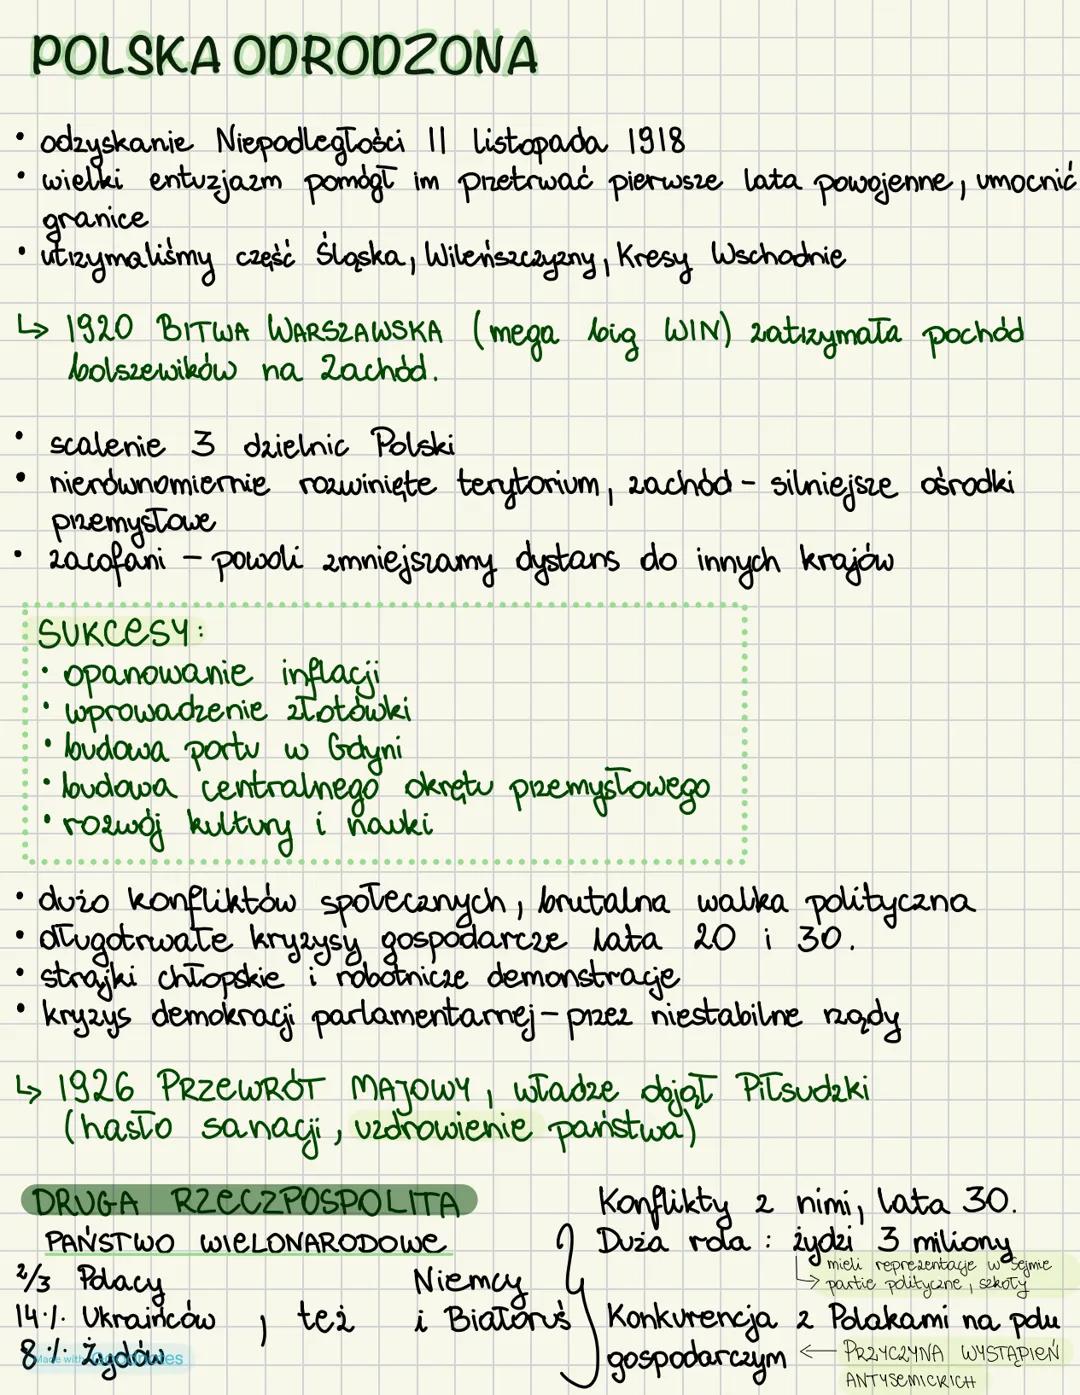 POLSKA ODRODZONA
• odzyskanie Niepodległości 11 listopada 1918
• wielki entuzjazm pomógł im przetrwać pierwsze lata powojenne, umocnić
granice
• utrzymaliśmy część Śląska, Wileńszczyzny, Kresy Wschodnie
↳ 1920 BITWA WARSZAWSKA (mega big WIN) zatrzymała pochód
bolszewików na Zachód.
• scalenie 3 dzielnic Polski
• nierównomiernie rozwinięte terytorium, zachód - silniejsze ośrodki
przemysłowe
• zacofani - powoli zmniejszamy dystans do innych krajów
SUKCESY:
• opanowanie inflacji
• wprowadzenie złotówki
• budowa portu w Gdyni
• budowa centralnego okrętu przemysłowego
• rozwój kultury i nauki
• dużo konfliktów społecznych, brutalna walka polityczna
• długotrwałe kryzysy gospodarcze lata 20 i 30.
• strajki chłopskie i robotnicze demonstracje
• kryzys demokracji parlamentarnej - przez niestabilne rządy
↳ 1926 PRZEWRÓT MAJOWY, władze objął Piłsudzki
(hasło sanacji, uzdrowienie państwa)
DRUGA RZECZPOSPOLITA
PAŃSTWO WIELONARODOWE
2/3 Polacy
14% Ukraińców , też
8% Żydów
Niemcy
i Białoruś
Konflikty z nimi, lata 30.
Duża rola : żydzi 3 miliony
↳ mieli reprezentacje w Sejmie
partie polityczne, szkoły
Konkurencja z Polakami na polu
gospodarczym ← PRZYCZYNA WYSTĄPIEŃ
ANTYSEMICKICH
Made with Goodnotes